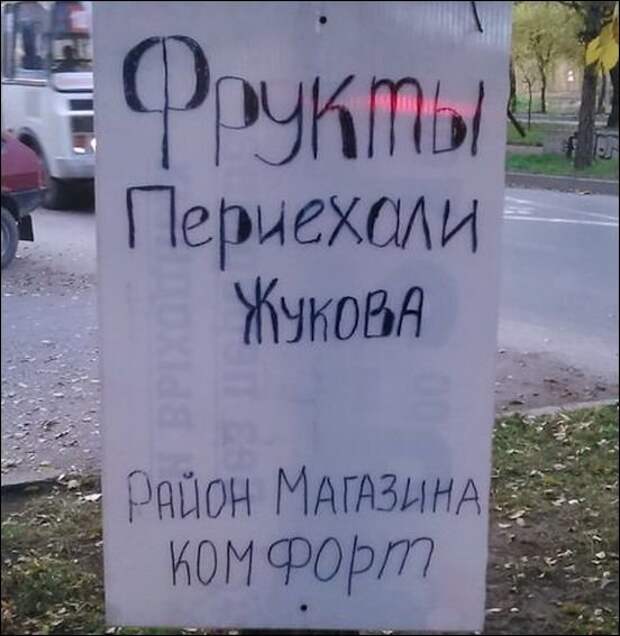 Фрукты
Периехали
Жукова
Район Магазина
комфорт